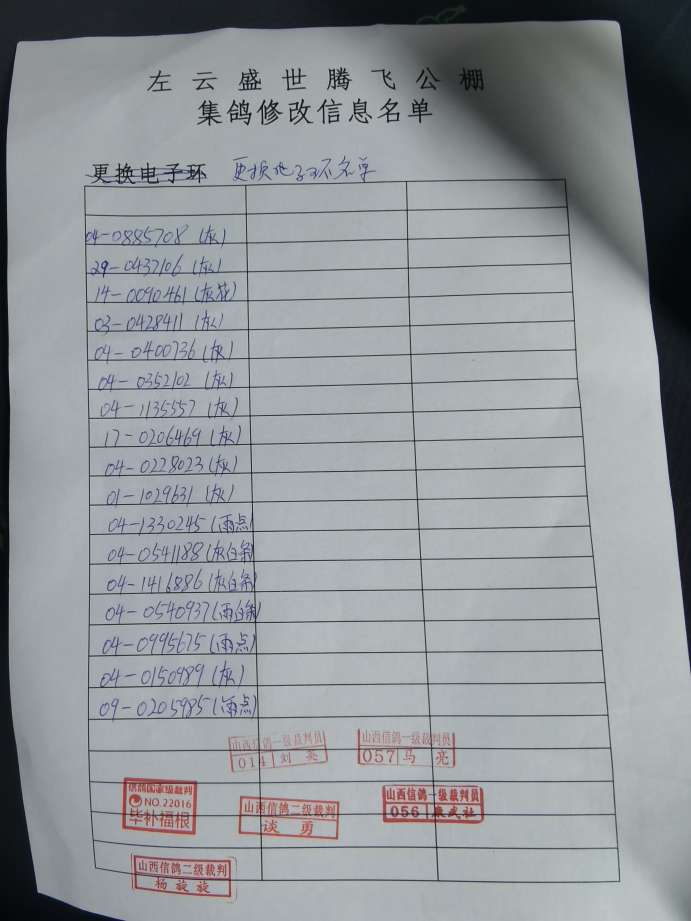 左云盛世腾飞公棚
集鸽修改信息名单
更换电子环 更换电子环名单
04-0885708 (灰)
29-0437106 (灰)
14-0090461 (灰花)
03-0428411 (灰)
04-0400736 (灰)
04-0352102 (灰)
04-1135557 (灰)
17-0206469 (灰)
04-0228023 (灰)
01-1029631 (灰)
04-1330245 (雨点)
04-0541188 (灰白条)
04-1416886 (灰白条)
04-0540937 (雨白条)
04-0995675 (雨点)
04-0150989 (灰)
09-0205985 (雨点)
山西信鸽一级裁判员
014 刘英
山西信鸽一级裁判员
057 马亮
信鸽国家级裁判
NO.22016
毕补福根
山西信鸽二级裁判
谈勇
山西信鸽一级裁判员
056 康武社
山西信鸽二级裁判
杨旋旋